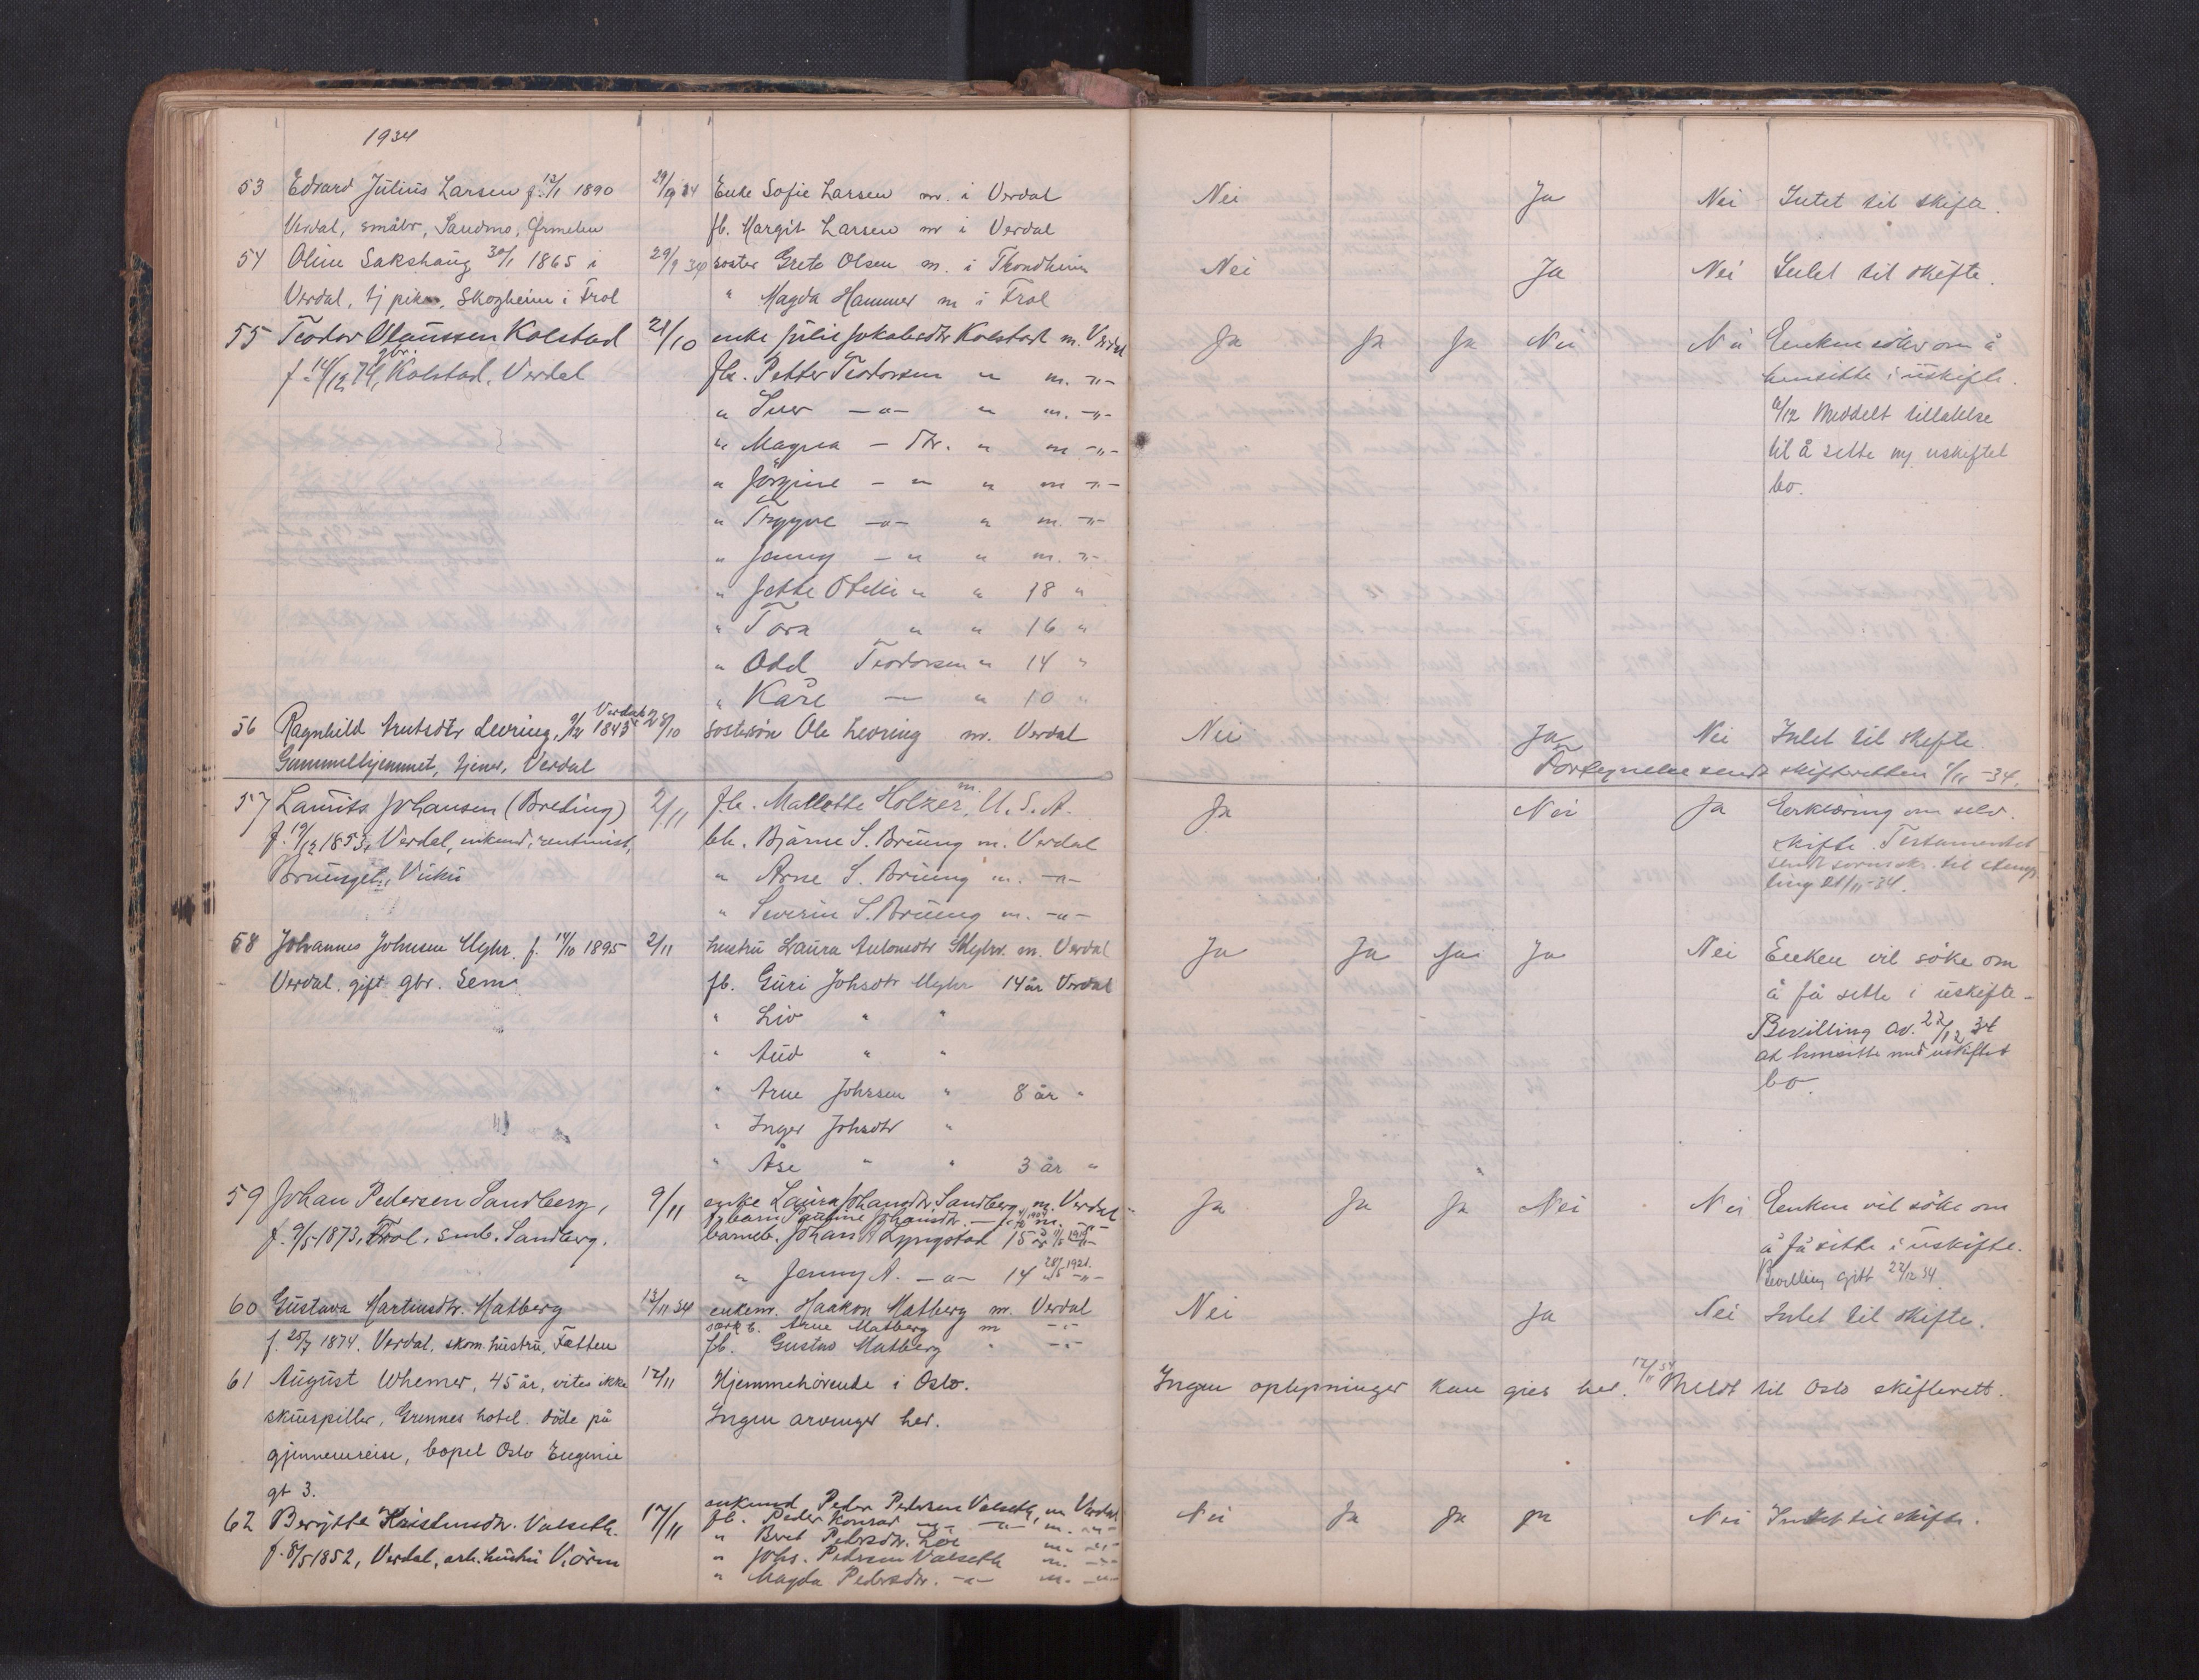 1934
53 Edvard Julius Larsen f. 13/1 1890 29/9 34 Enke Sofie Larsen m. i Verdal Nei Ja Nei Intet til skifte.
Verdal, småbr, Sandmo, Ørmelen fb. Margit Larsen m i Verdal
54 Oline Sakshaug 30/1 1865 i 29/9 34 søster Grete Olsen m. i Trondheim Nei Ja Nei Intet til skifte.
Verdal, tj pike, Skogheim i Frol " Magda Hammer m i Frol
55 Teodor Olaussen Kolstad 21/10 enke Julie Jakobsdtr Kolstad m. Verdal Ja Ja Ja Nei Nei Enken söker om å
f. 14/12 74, gbr. Kolstad, Verdal fb. Petter Teodorsen " m. -"- hensitte i uskifte.
" Iver -"- " m. -"- 6/12 Meddelt tillatelse
" Magna - Dtr. " m -"- til å sitte m/ uskiftet
" Jörgine - " " m -"- bo.
" Trygve -"- " m. -"-
" Jenny - " " m. -"-
" Jette Otelie " " 18 "
" Tora " " 16 "
" Odd Teodorsen " 14 "
" Kåre - " 10 "
56 Ragnhild Knutsdtr Levring, 9/12 1843 Verdal 28/10 søstersøn Ole Levring m. Verdal Nei Ja Nei Intet til skifte
Gammelhjemmet, tjener, Verdal Fortegnelse sendt skifteretten 1/11 -34.
57 Laurits Johansen (Breding) 2/11 fb. Mallotte Holzer, m. U.S.A. Ja Nei Ja Erklæring om selv.
f. 19/12 1853, Verdal, enkemd, rentenist, bb. Bjarne S. Bruung m. Verdal skifte. Testamentet
Bruunget, Vuku " Arne S. Bruung m. -"- sendt sorensk. til stemp
" Severin S. Bruung m. -"- ling 21/11-34.
58 Johannes Johnsen Myhr. f. 14/10 1895 2/11 hustru Laura Antonsdtr Myhr. m. Verdal Ja Ja Ja Ja Nei Enken vil söke om
Verdal. gift gbr. Sem fb. Guri Johsdtr Myhr 14 år Verdal å få sitte i uskifte.
" Liv " " Bevilling av. 22/12 34
" Aud " " at hensitte med uskiftet
" Arne Johssen " 8 år " bo
" Inger Johsdtr "
" Åse " " 3 år "
59 Johan Pedersen Sandberg, 9/11 enke Laura Johansdtr. Sandberg m. Verdal Ja Ja Ja Nei Nei Enken vil söke om
f. 9/5 1873, Frol, smb. Sandberg. f. barn Pauline Johansdtr. m. -"- å få sitte i uskifte.
barneb. Johan A Lyngstad 15 år Bevilling gitt 22/12 34
" Jenny A. -"- 14 " 1921. -"-
60 Gustava Martinsdtr. Matberg 13/11 34 enkem. Haakon Matberg m. Verdal Nei Ja Nei Intet til skifte.
særk b. Arne Matberg m -"-
f. 25/7 1874. Verdal. skom. hustru, Fætten fb. Gustav Matberg " -"-
61 August Whemer, 45 år, vites ikke 17/11 Hjemmehörende i Oslo. Ingen oplysninger kan gies her. 17/11 34 Meldt til Oslo skifterett.
skuespiller, Grennes hotel. döde på Ingen arvinger her.
gjennemreise, bopel Oslo Eugenie
gt 3.
62 Beritte Kristensdtr. Valseth. 17/11 enkemd Peder Pedersen Valseth, m Verdal Nei Ja Ja Ja Nei Intet til skifte.
fb. Peder Konrad -"- -"- m. -"-
f. 8/5 1852, Verdal, arb. hustru V.örm " Beret Pedersdtr. Löe m. -"-
" Johs. Pedersen Valseth m. -"-
" Magda Pedersdtr. -"- m. -"-